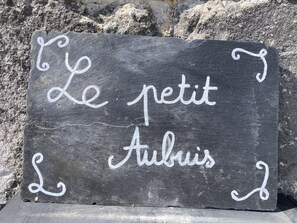 Le petit
Aubuis